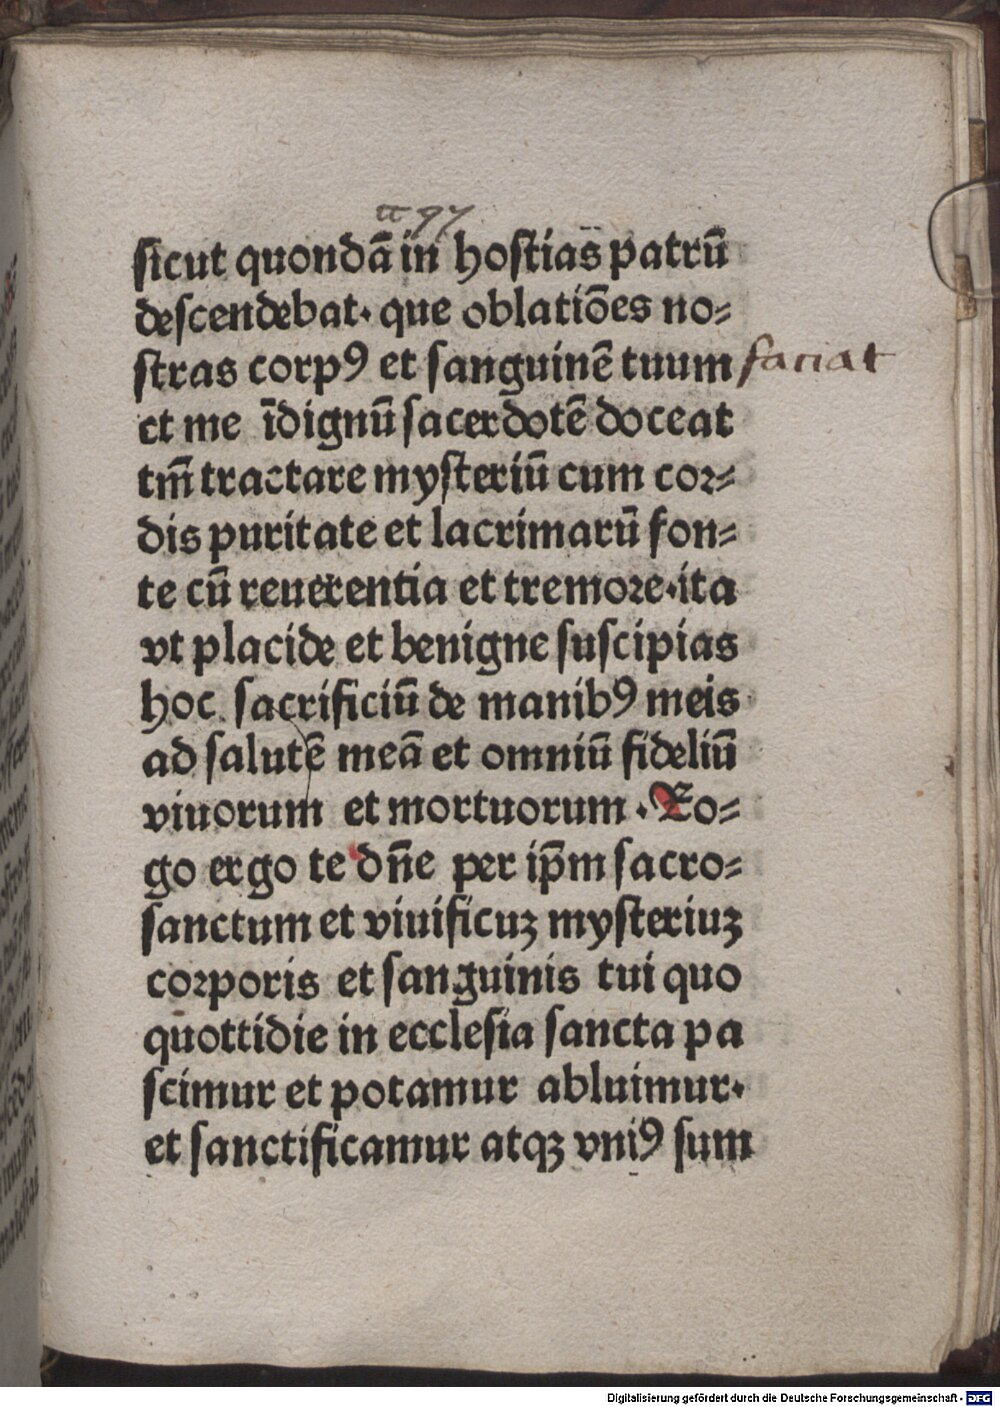 sicut quondā in hostias patrū
descendebat· que oblatiōes no⸗
stras corpꝰ et sanguinē tuum faciat
et me īdignū sacerdotē doceat
tm̄ tractare mysteriū cum cor⸗
dis puritate et lacrimarū fon⸗
te cū reuerentia et tremore·ita
vt placide et benigne suscipias
hoc sacrificiū de manibꝰ meis
ad salutē meā et omniū fideliū
viuorum et mortuorum · Ro⸗
go ergo te dn̄e per ip̄m sacro⸗
sanctum et viuificuꝫ mysteriuꝫ
corporis et sanguinis tui quo
quottidie in ecclesia sancta pa
scimur et potamur abluimur·
et sanctificamur atqꝫ vniꝰ sum
Digitalisierung gefördert durch die Deutsche Forschungsgemeinschaft - DFG